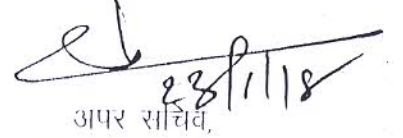 23/1/18
अपर सचिव,